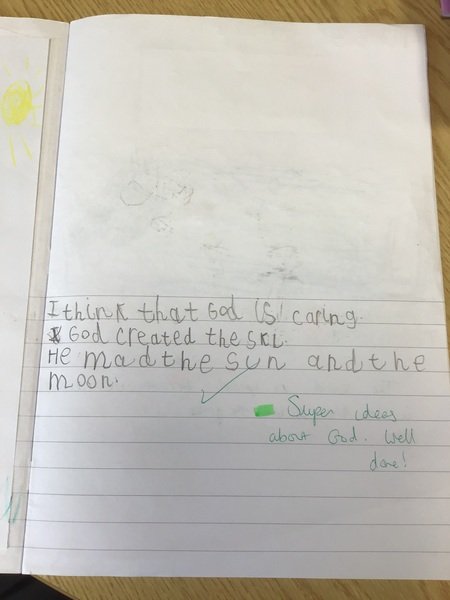 I think that God is caring.
God created the ski.
He mad the sun and the
moon.
Super ideas
about God. Well
done!